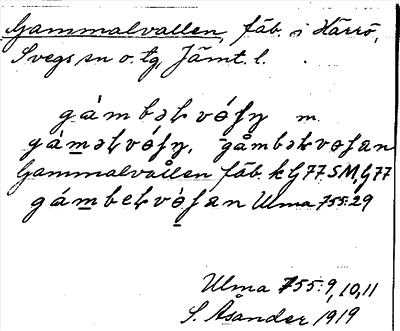 Gammalvallen, fäb. i Härrö,
Svegs sn o. tg Jämt. l.
gámbəlvó̜ļn m.
gáməlvó̜ļn, gåmbəlvoļan
Gammalvallen fäb. k G77 SM, G77
gámbelvó̜ļan Ulma 755:29
Ulma 755:9,10,11
S. Åsander 1919